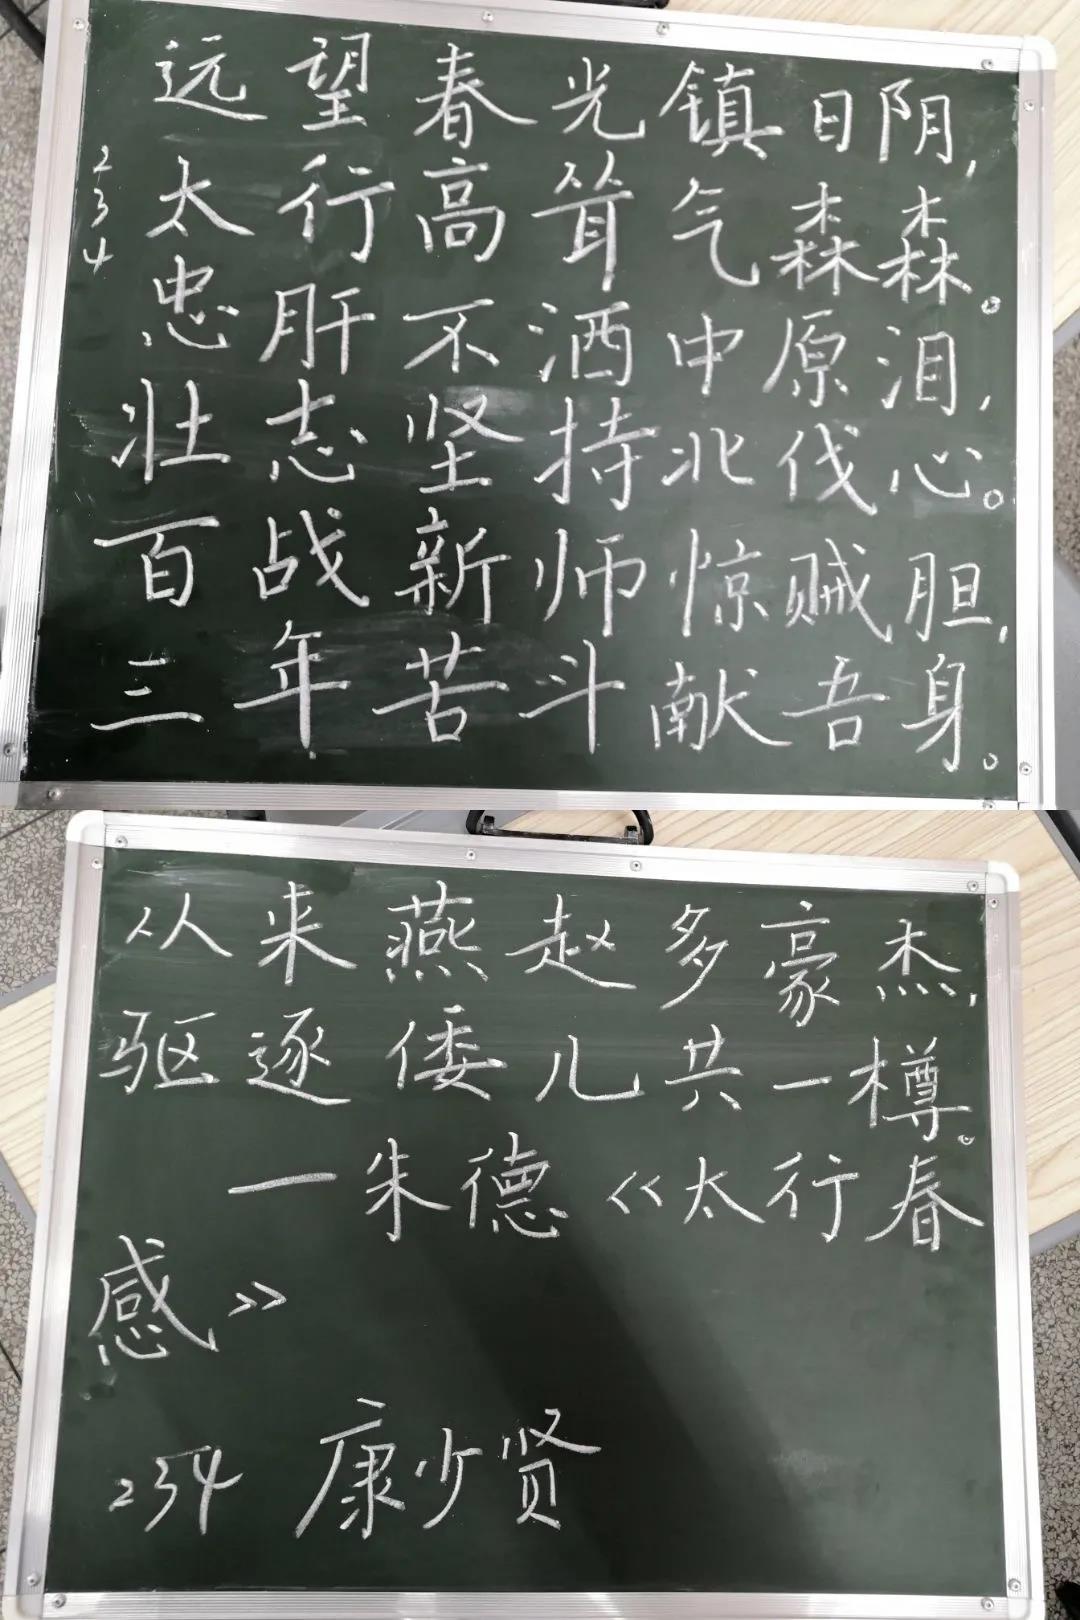 远望春光镇日阴,
234
太行高耸气森森。
忠肝不洒中原泪,
壮志坚持北伐心。
百战新师惊贼胆,
三年苦斗献吾身。
从来燕赵多豪杰,
驱逐倭儿共一樽。
一朱德《太行春
感》
234 康少贤